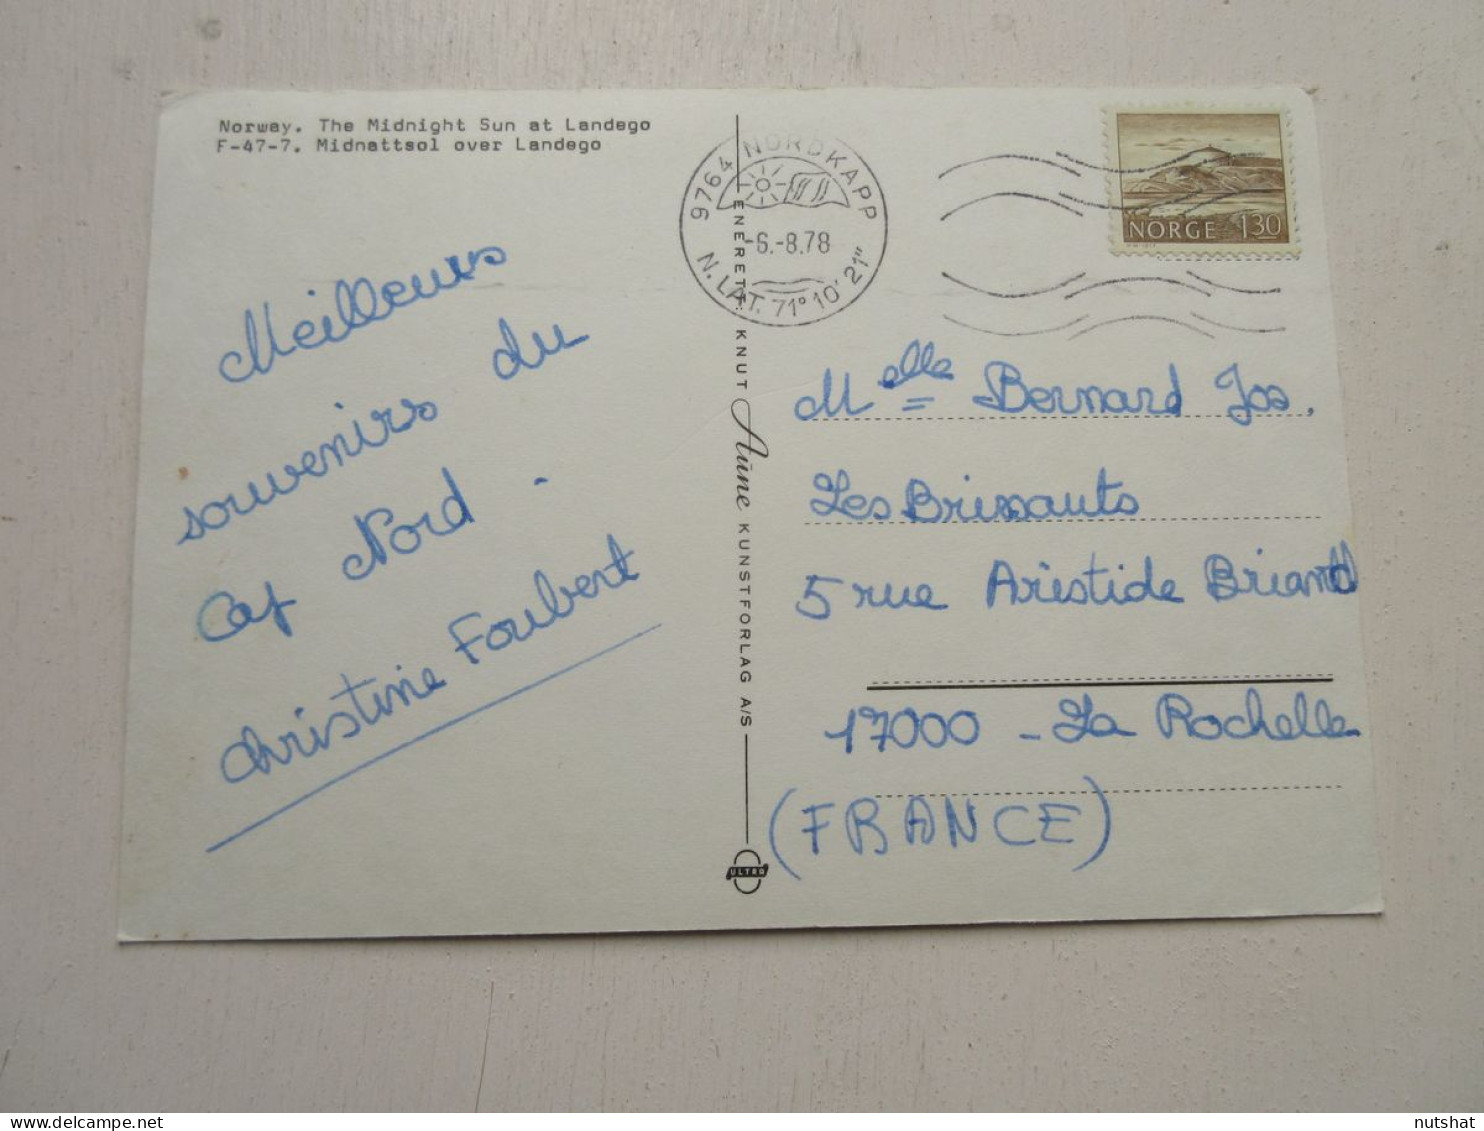 Norway. The Midnight Sun at Landego
F-47-7. Midnattsol over Landego
Meilleurs
souvenirs du
Cap Nord.
Christine Foubert
ENERETT: KNUT Aune KUNSTFORLAG A/S
ULTRA
9764 NORDKAPP
-6.-8.78
N. LAT. 71° 10' 21"
NORGE 130
Melle Bernard Jos,
Les Brissauts
5 rue Aristide Briand
17000 - La Rochelle
(FRANCE)
nutshat